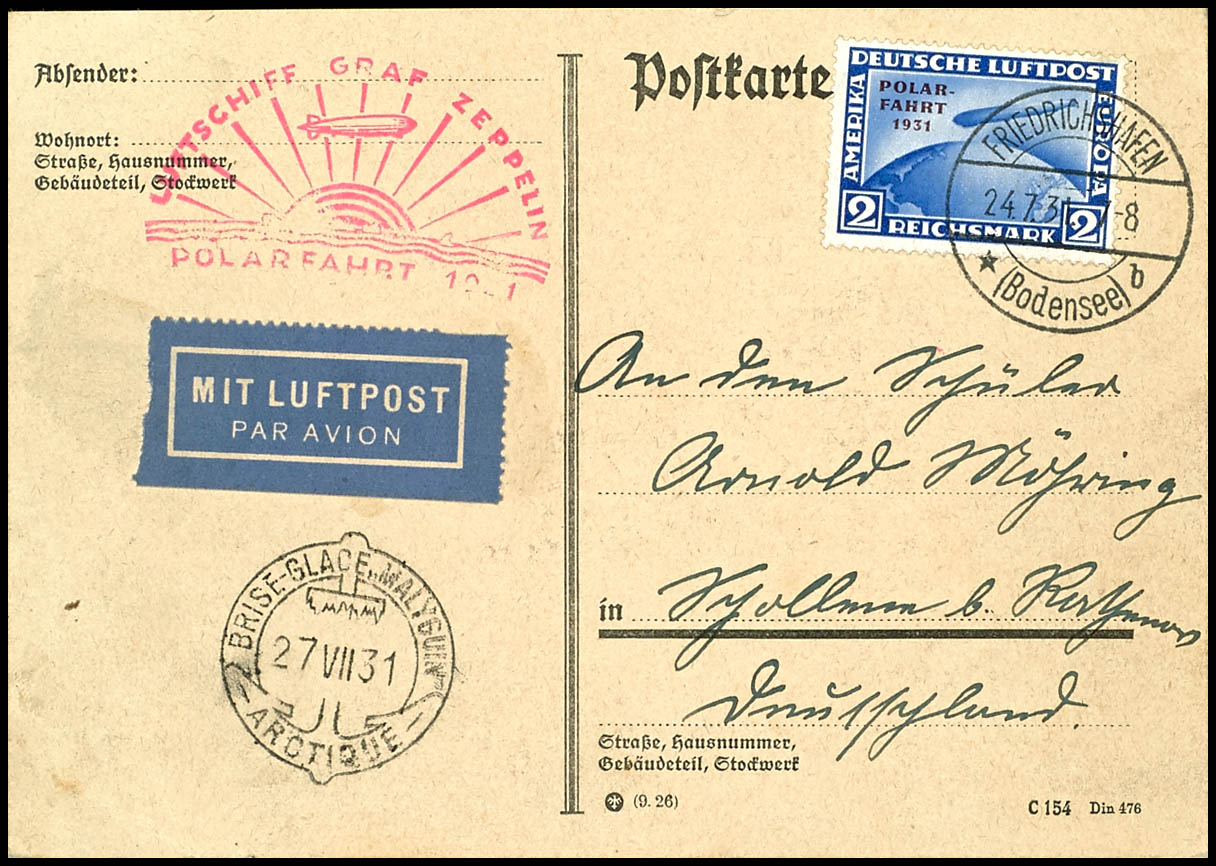 Absender:
Wohnort:
Straße, Hausnummer,
Gebäudeteil, Stockwerk
LUFTSCHIFF GRAF ZEPPELIN
POLARFAHRT 1931
MIT LUFTPOST
PAR AVION
BRISE-GLACE "MALYGUIN"
27 VII 31
ARCTIQUE
Postkarte
DEUTSCHE LUFTPOST
AMERIKA
EUROPA
POLAR-
FAHRT
1931
2 REICHSMARK 2
FRIEDRICHSHAFEN
24.7.31. 7-8
(Bodensee) b
An den Schüler
Arnold Möhring
in Schollene b. Rathenow
Deutschland.
Straße, Hausnummer,
Gebäudeteil, Stockwerk
(9. 26)
C 154 Din 476